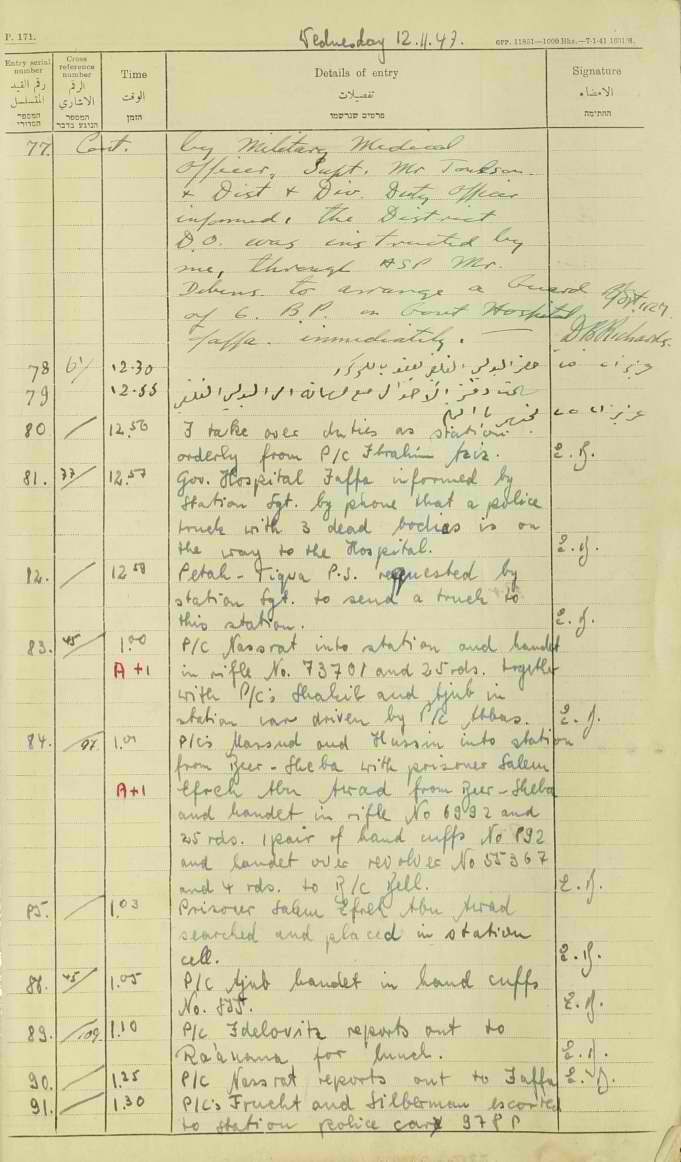 P. 171.
Wednesday 12.11.47.
GPP. 11851—1000 Bks.—7-1-41
Entry serial number
Cross reference number
Time
Details of entry
Signature
رقم القيد المتسلسل
الرقم الاشاري
الوقت
تفصيلات
الامضاء
המספר הסדורי
המספר הנוגע בדבר
הזמן
פרטים שנרשמו
החתימה
77. Cont. by Military Medical
Officer, Supt. Mr
& Dist & Div. Duty Officer
informed, the District
D.O. was instructed by
me, through ASP Mr.
to arrange a Guard
of 6. B.P. in Govt Hospital
Jaffa. immediately. — D B Richards.
78 12.30
79 12.55
80 / 12.56 I take over duties as station
orderly from P/C Ibrahim Aziz. E. B.
81. 77/ 12.57 Gov. Hospital Jaffa informed by
Station Sgt. by phone that a police
truck with 3 dead bodies is on
the way to the Hospital. E. B.
82. / 12.58 Petah-Tiqva P.S. requested by
station Sgt. to send a truck to
this station. E. B.
83. 45/ 1.00 P/C Nassrat into station and handet
A+1 in rifle No. 73701 and 25 rds. together
with P/C's Shakib and Ajub in
station car driven by P/C Abbas. E. B.
84. /97. 1.01 P/C's Massud and Hussin into station
from Beer-Sheba with prisoner Salem
A+1 Efreh Abu Awad from Beer-Sheba
and handet in rifle No 6992 and
25 rds. 1 pair of hand cuffs No 892
and handet over revolver No 55367
and 4 rds. to B/C Bell. E. B.
85. / 1.03 Prisoner Salem Efreh Abu Awad
searched and placed in station
cell. E. B.
88. 45/ 1.05 P/C Ajub handet in hand cuffs
No. 855. E. B.
89. /109. 1.10 P/C Idelovitz reports out to
Ra'anana for lunch. E. B.
90. / 1.25 P/C Nassrat reports out to Jaffa E. B.
91. / 1.30 P/C's Frucht and Silberman escorted
to station police car 978 P